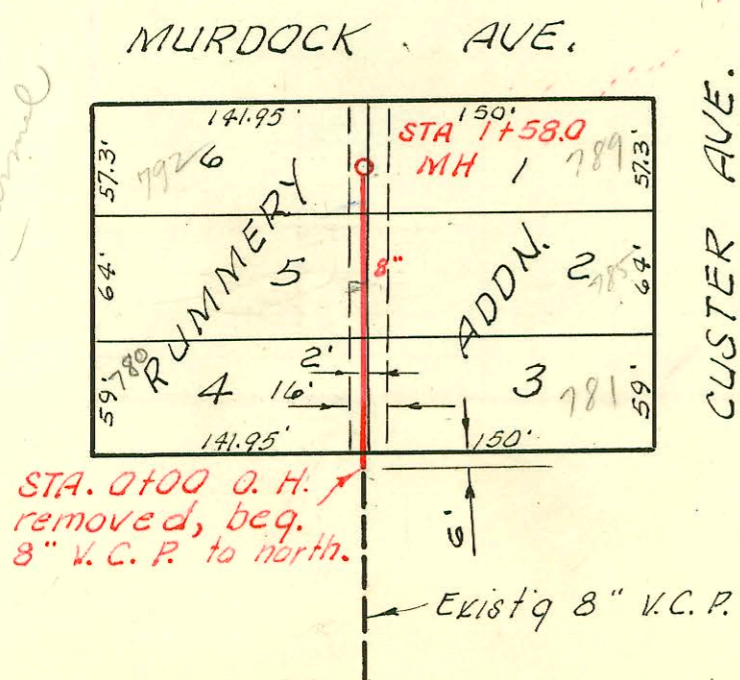 MURDOCK AVE.
CUSTER AVE.
141.95'
150'
STA 1+58.0
MH
57.3'
792
6
1
789
57.3'
RUMMERY
ADDN.
64'
5
8"
2
785
64'
2'
59'
780
4
16'
3
781
59'
141.95'
150'
6'
STA. 0+00 O. H.
removed, beg.
8" V. C. P. to north.
Exist'g 8" V.C.P.